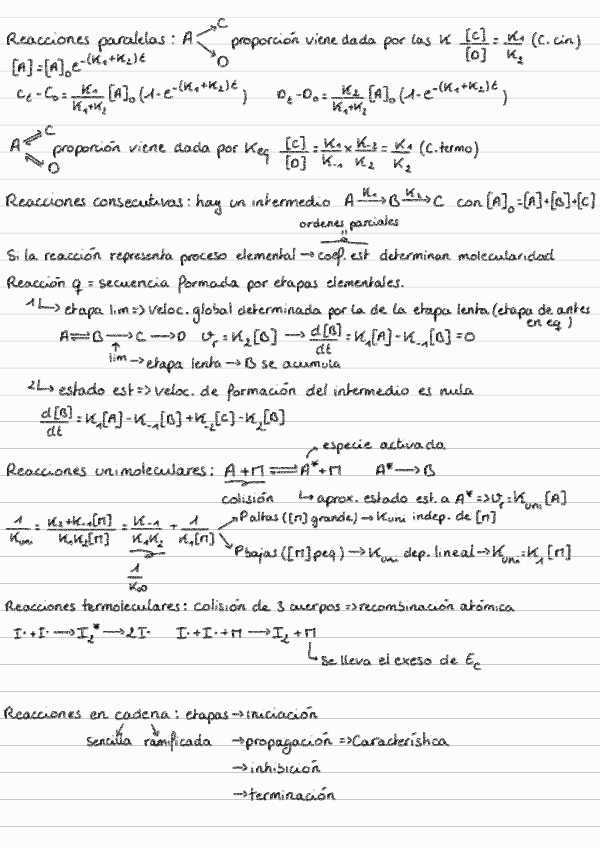 Reacciones paralelas : A ↗ C ↘ D proporción viene dada por las K [C]/[D] = K₁/K₂ (C. cin)
[A]=[A]₀e^-(K₁+K₂)t
C_t - C₀ = K₁/(K₁+K₂) [A]₀ (1-e^-(K₁+K₂)t)   D_t - D₀ = K₂/(K₁+K₂) [A]₀ (1-e^-(K₁+K₂)t)
A ⇌ C ⇌ D proporción viene dada por Keq [C]/[D] = K₁/K₋₁ × K₋₂/K₂ = K₁/K₂ (C. termo)
Reacciones consecutivas: hay un intermedio A —K₁→ B —K₂→ C con [A]₀=[A]+[B]+[C]
ordenes parciales
Si la reacción representa proceso elemental → coef. est determinan molecularidad
Reacción q = secuencia formada por etapas elementales.
1↳ etapa lim => veloc. global determinada por la de la etapa lenta (etapa de antes en eq)
A ⇌ B → C → D   v_r = K₂[B] → d[B]/dt = K₁[A] - K₋₁[B] = 0
lim → etapa lenta → B se acumula
2↳ estado est => veloc. de formación del intermedio es nula
d[B]/dt = K₁[A] - K₋₁[B] + K₋₂[C] - K₂[B]
especie activada
Reacciones unimoleculares: A + M ⇌ A* + M   A* → B
colisión   ↳ aprox. estado est. a A* => v_r = K_uni [A]
1/K_uni = (K₂+K₋₁[M])/(K₁K₂[M]) = K₋₁/(K₁K₂) + 1/(K₁[M]) ↗ P altas ([M] grande) → K_uni indep. de [M]
↘ P bajas ([M] peq) → K_uni dep. lineal → K_uni = K₁[M]
1/K∞
Reacciones termoleculares: colisión de 3 cuerpos => recombinación atómica
I· + I· → I₂* → 2I·   I· + I· + M → I₂ + M
↳ Se lleva el exeso de E_c
Reacciones en cadena : etapas → iniciación
sencilla ramificada → propagación => Característica
→ inhibición
→ terminación